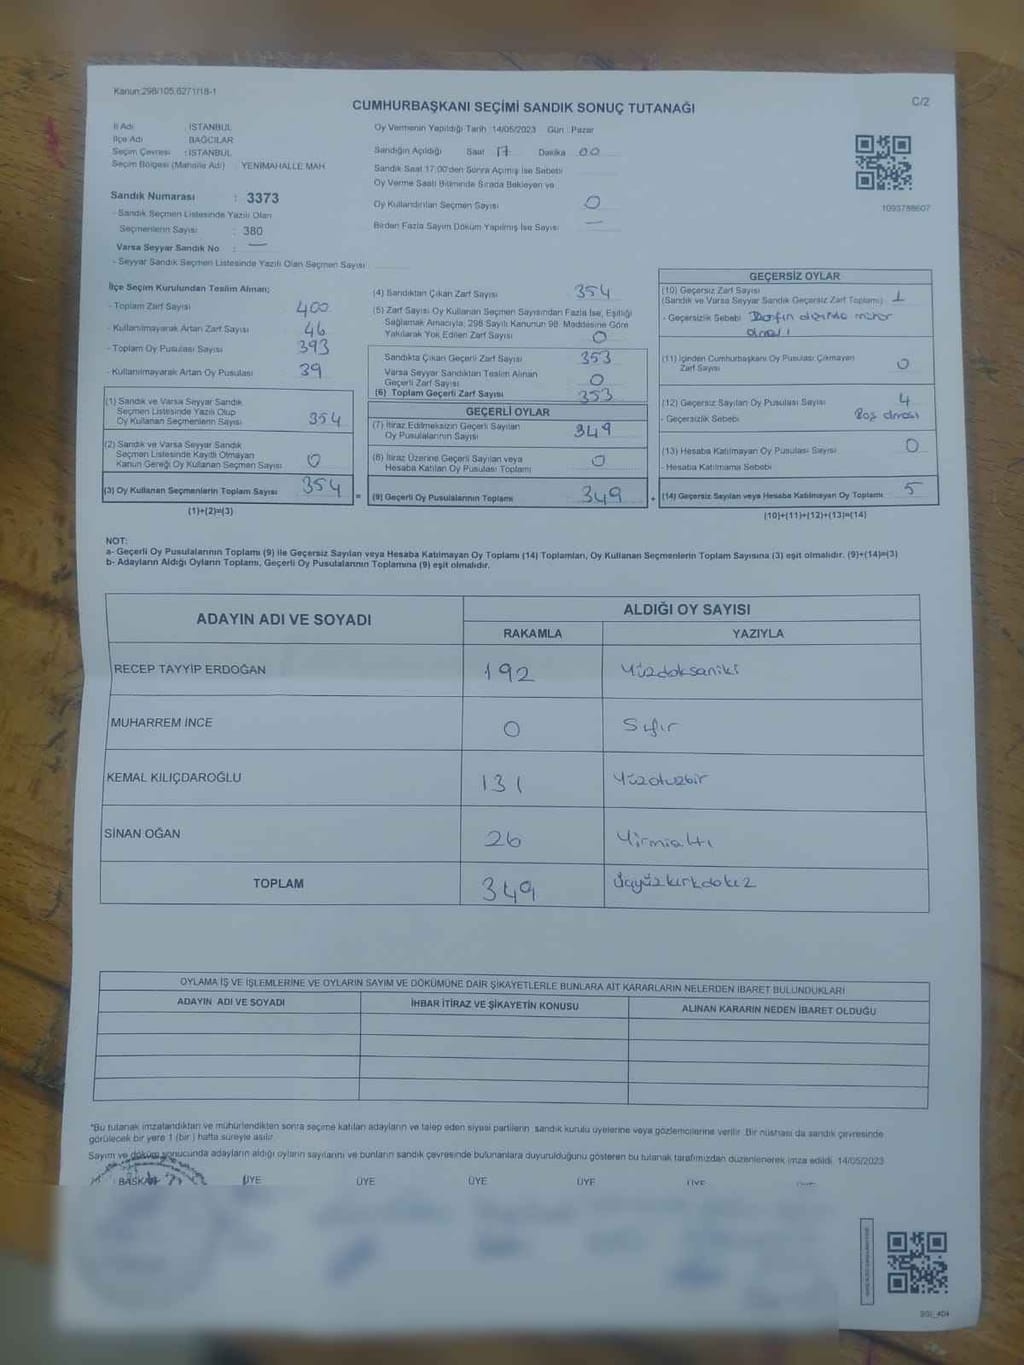 Kanun:298/105,6271/18-1
C/2
CUMHURBAŞKANI SEÇİMİ SANDIK SONUÇ TUTANAĞI
İl Adı : İSTANBUL
İlçe Adı : BAĞCILAR
Seçim Çevresi : İSTANBUL
Seçim Bölgesi (Mahalle Adı) : YENİMAHALLE MAH.
Sandık Numarası : 3373
- Sandık Seçmen Listesinde Yazılı Olan
Seçmenlerin Sayısı : 380
Varsa Seyyar Sandık No : —
- Seyyar Sandık Seçmen Listesinde Yazılı Olan Seçmen Sayısı
Oy Vermenin Yapıldığı Tarih :14/05/2023 Gün : Pazar
Sandığın Açıldığı Saat 17 Dakika 00
Sandık Saat 17:00'den Sonra Açılmış İse Sebebi
Oy Verme Saati Bitiminde Sırada Bekleyen ve
Oy Kullandırılan Seçmen Sayısı 0
Birden Fazla Sayım Döküm Yapılmış İse Sayısı —
1093788607
İlçe Seçim Kurulundan Teslim Alınan;
- Toplam Zarf Sayısı 400
- Kullanılmayarak Artan Zarf Sayısı 46
- Toplam Oy Pusulası Sayısı 393
- Kullanılmayarak Artan Oy Pusulası 39
(1) Sandık ve Varsa Seyyar Sandık
Seçmen Listesinde Yazılı Olup
Oy Kullanan Seçmenlerin Sayısı 354
(2) Sandık ve Varsa Seyyar Sandık
Seçmen Listesinde Kayıtlı Olmayan
Kanun Gereği Oy Kullanan Seçmen Sayısı 0
(3) Oy Kullanan Seçmenlerin Toplam Sayısı 354
(1)+(2)=(3)
(4) Sandıktan Çıkan Zarf Sayısı 354
(5) Zarf Sayısı Oy Kullanan Seçmen Sayısından Fazla İse, Eşitliği
Sağlamak Amacıyla, 298 Sayılı Kanunun 98. Maddesine Göre
Yakılarak Yok Edilen Zarf Sayısı 0
Sandıkta Çıkan Geçerli Zarf Sayısı 353
Varsa Seyyar Sandıktan Teslim Alınan
Geçerli Zarf Sayısı 0
(6) Toplam Geçerli Zarf Sayısı 353
GEÇERLİ OYLAR
(7) İtiraz Edilmeksizin Geçerli Sayılan
Oy Pusulalarının Sayısı 349
(8) İtiraz Üzerine Geçerli Sayılan veya
Hesaba Katılan Oy Pusulası Toplamı 0
= (9) Geçerli Oy Pusulalarının Toplamı 349 +
GEÇERSİZ OYLAR
(10) Geçersiz Zarf Sayısı
(Sandık ve Varsa Seyyar Sandık Geçersiz Zarf Toplamı) 1
- Geçersizlik Sebebi Zarfın dışında mühür
olması
(11) İçinden Cumhurbaşkanı Oy Pusulası Çıkmayan
Zarf Sayısı 0
(12) Geçersiz Sayılan Oy Pusulası Sayısı 4
- Geçersizlik Sebebi Boş olması
(13) Hesaba Katılmayan Oy Pusulası Sayısı 0
- Hesaba Katılmama Sebebi
(14) Geçersiz Sayılan veya Hesaba Katılmayan Oy Toplamı 5
(10)+(11)+(12)+(13)=(14)
NOT:
a- Geçerli Oy Pusulalarının Toplamı (9) ile Geçersiz Sayılan veya Hesaba Katılmayan Oy Toplamı (14) Toplamları, Oy Kullanan Seçmenlerin Toplam Sayısına (3) eşit olmalıdır. (9)+(14)=(3)
b- Adayların Aldığı Oyların Toplamı, Geçerli Oy Pusulalarının Toplamına (9) eşit olmalıdır.
ADAYIN ADI VE SOYADI
ALDIĞI OY SAYISI
RAKAMLA YAZIYLA
RECEP TAYYİP ERDOĞAN 192 Yüzdoksaniki
MUHARREM İNCE 0 Sıfır
KEMAL KILIÇDAROĞLU 131 Yüzotuzbir
SİNAN OĞAN 26 Yirmialtı
TOPLAM 349 Üçyüzkırkdokuz
OYLAMA İŞ VE İŞLEMLERİNE VE OYLARIN SAYIM VE DÖKÜMÜNE DAİR ŞİKAYETLERLE BUNLARA AİT KARARLARIN NELERDEN İBARET BULUNDUKLARI
ADAYIN ADI VE SOYADI İHBAR İTİRAZ VE ŞİKAYETİN KONUSU ALINAN KARARIN NEDEN İBARET OLDUĞU
*Bu tutanak imzalandıktan ve mühürlendikten sonra seçime katılan adayların ve talep eden siyasi partilerin sandık kurulu üyelerine veya gözlemcilerine verilir. Bir nüshası da sandık çevresinde
görülecek bir yere 1 (bir) hafta süreyle asılır.
Sayım ve döküm sonucunda adayların aldığı oyların sayılarını ve bunların sandık çevresinde bulunanlara duyurulduğunu gösteren bu tutanak tarafımızdan düzenlenerek imza edildi. 14/05/2023
BAŞKAN ÜYE ÜYE ÜYE ÜYE ÜYE